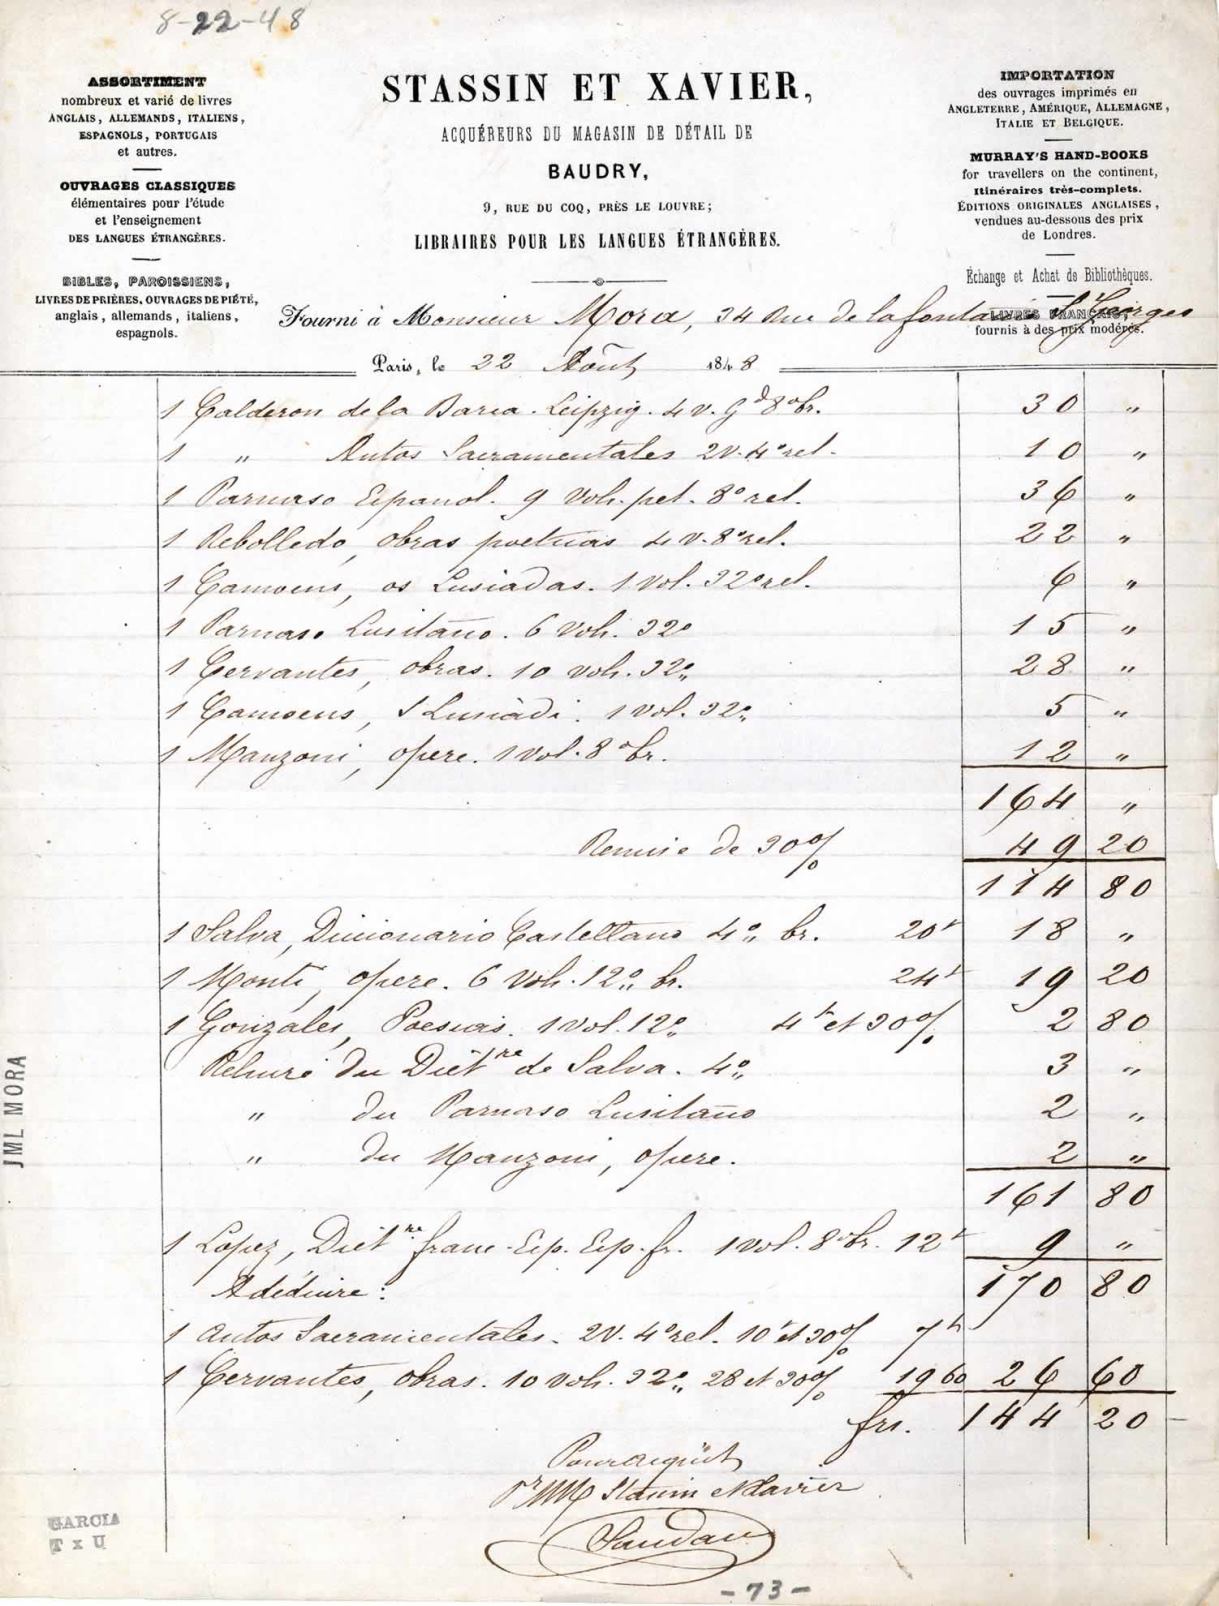 8-22-48
ASSORTIMENT
nombreux et varié de livres
ANGLAIS, ALLEMANDS, ITALIENS,
ESPAGNOLS, PORTUGAIS
et autres.
OUVRAGES CLASSIQUES
élémentaires pour l'étude
et l'enseignement
DES LANGUES ÉTRANGÈRES.
BIBLES, PAROISSIENS,
LIVRES DE PRIÈRES, OUVRAGES DE PIÉTÉ,
anglais, allemands, italiens,
espagnols.
STASSIN ET XAVIER,
ACQUÉREURS DU MAGASIN DE DÉTAIL DE
BAUDRY,
9, RUE DU COQ, PRÈS LE LOUVRE;
LIBRAIRES POUR LES LANGUES ÉTRANGÈRES.
IMPORTATION
des ouvrages imprimés en
ANGLETERRE, AMÉRIQUE, ALLEMAGNE,
ITALIE ET BELGIQUE.
MURRAY'S HAND-BOOKS
for travellers on the continent,
Itinéraires très-complets.
ÉDITIONS ORIGINALES ANGLAISES,
vendues au-dessous des prix
de Londres.
Échange et Achat de Bibliothèques.
LIVRES FRANÇAIS,
fournis à des prix modérés.
Fourni à Monsieur Mora, 34 Rue de la fontaine St Georges
Paris, le 22 Août 1848
1 Calderon de la Barca. Leipzig. 4 v. gd 8o br. 30 "
1 " Autos Sacramentales 2v. 4o rel. 10 "
1 Parnaso Espanol. 9 vols. pet. 8o rel. 36 "
1 Rebolledo, obras poeticas 4 v. 8o rel. 22 "
1 Camoens, os Lusiadas. 1 vol. 32o rel. 6 "
1 Parnaso Lusitano. 6 vols. 32o 15 "
1 Cervantes, obras. 10 vols. 32o 28 "
1 Camoens, I Lusiadi. 1 vol. 32o 5 "
1 Manzoni, opere. 1 vol. 8o br. 12 "
164 "
Remise de 30% 49 20
114 80
1 Salva, Diccionario Castellano 4o br. 20f 18 "
1 Monti, opere. 6 vols. 12o br. 24f 19 20
1 Gonzales, Poesias. 1 vol. 12o 4f et 30% 2 80
Reliure du Dictre de Salva. 4o 3 "
" du Parnaso Lusitano 2 "
" du Manzoni, opere. 2 "
161 80
1 Lopez, Dictre franc-Esp. Esp. fr. 1 vol. 8o br. 12f 9 "
A déduire: 170 80
1 Autos Sacramentales. 2v. 4o rel. 10f et 30% 7f
1 Cervantes, obras. 10 vols. 32o 28 et 30% 19 60 26 60
frs. 144 20
Pour acquit
Pr MM Stassin et Xavier
JML MORA
GARCIA
T x U
-73-